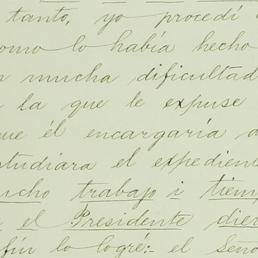 tanto, yo procedí
como lo había hecho
mucha dificultad
la que le expuse
que él encargaría a
estudiara el expedien
mucho trabajo i tiemp
el Presidente dier
fín lo logré:- el Seño